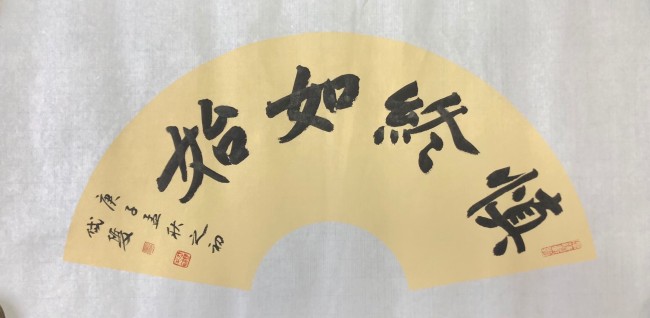 慎終如始
庚子孟秋之初